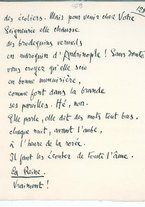 des écoliers. Mais pour venir chez Votre
Seigneurie elle chausse
des brodequins vermeils
en maroquin d'Andrinople ! Sans doute
vous croyez qu'elle soie
en bonne menuisière,
comme font dans la brande
ses pareilles. Hé, non.
Elle parle, elle dit des mots tout bas,
chaque nuit, avant l'aube,
à l'heure de la rosée.
Il faut les écouter de toute l'âme.
La Reine.
Vraiment !